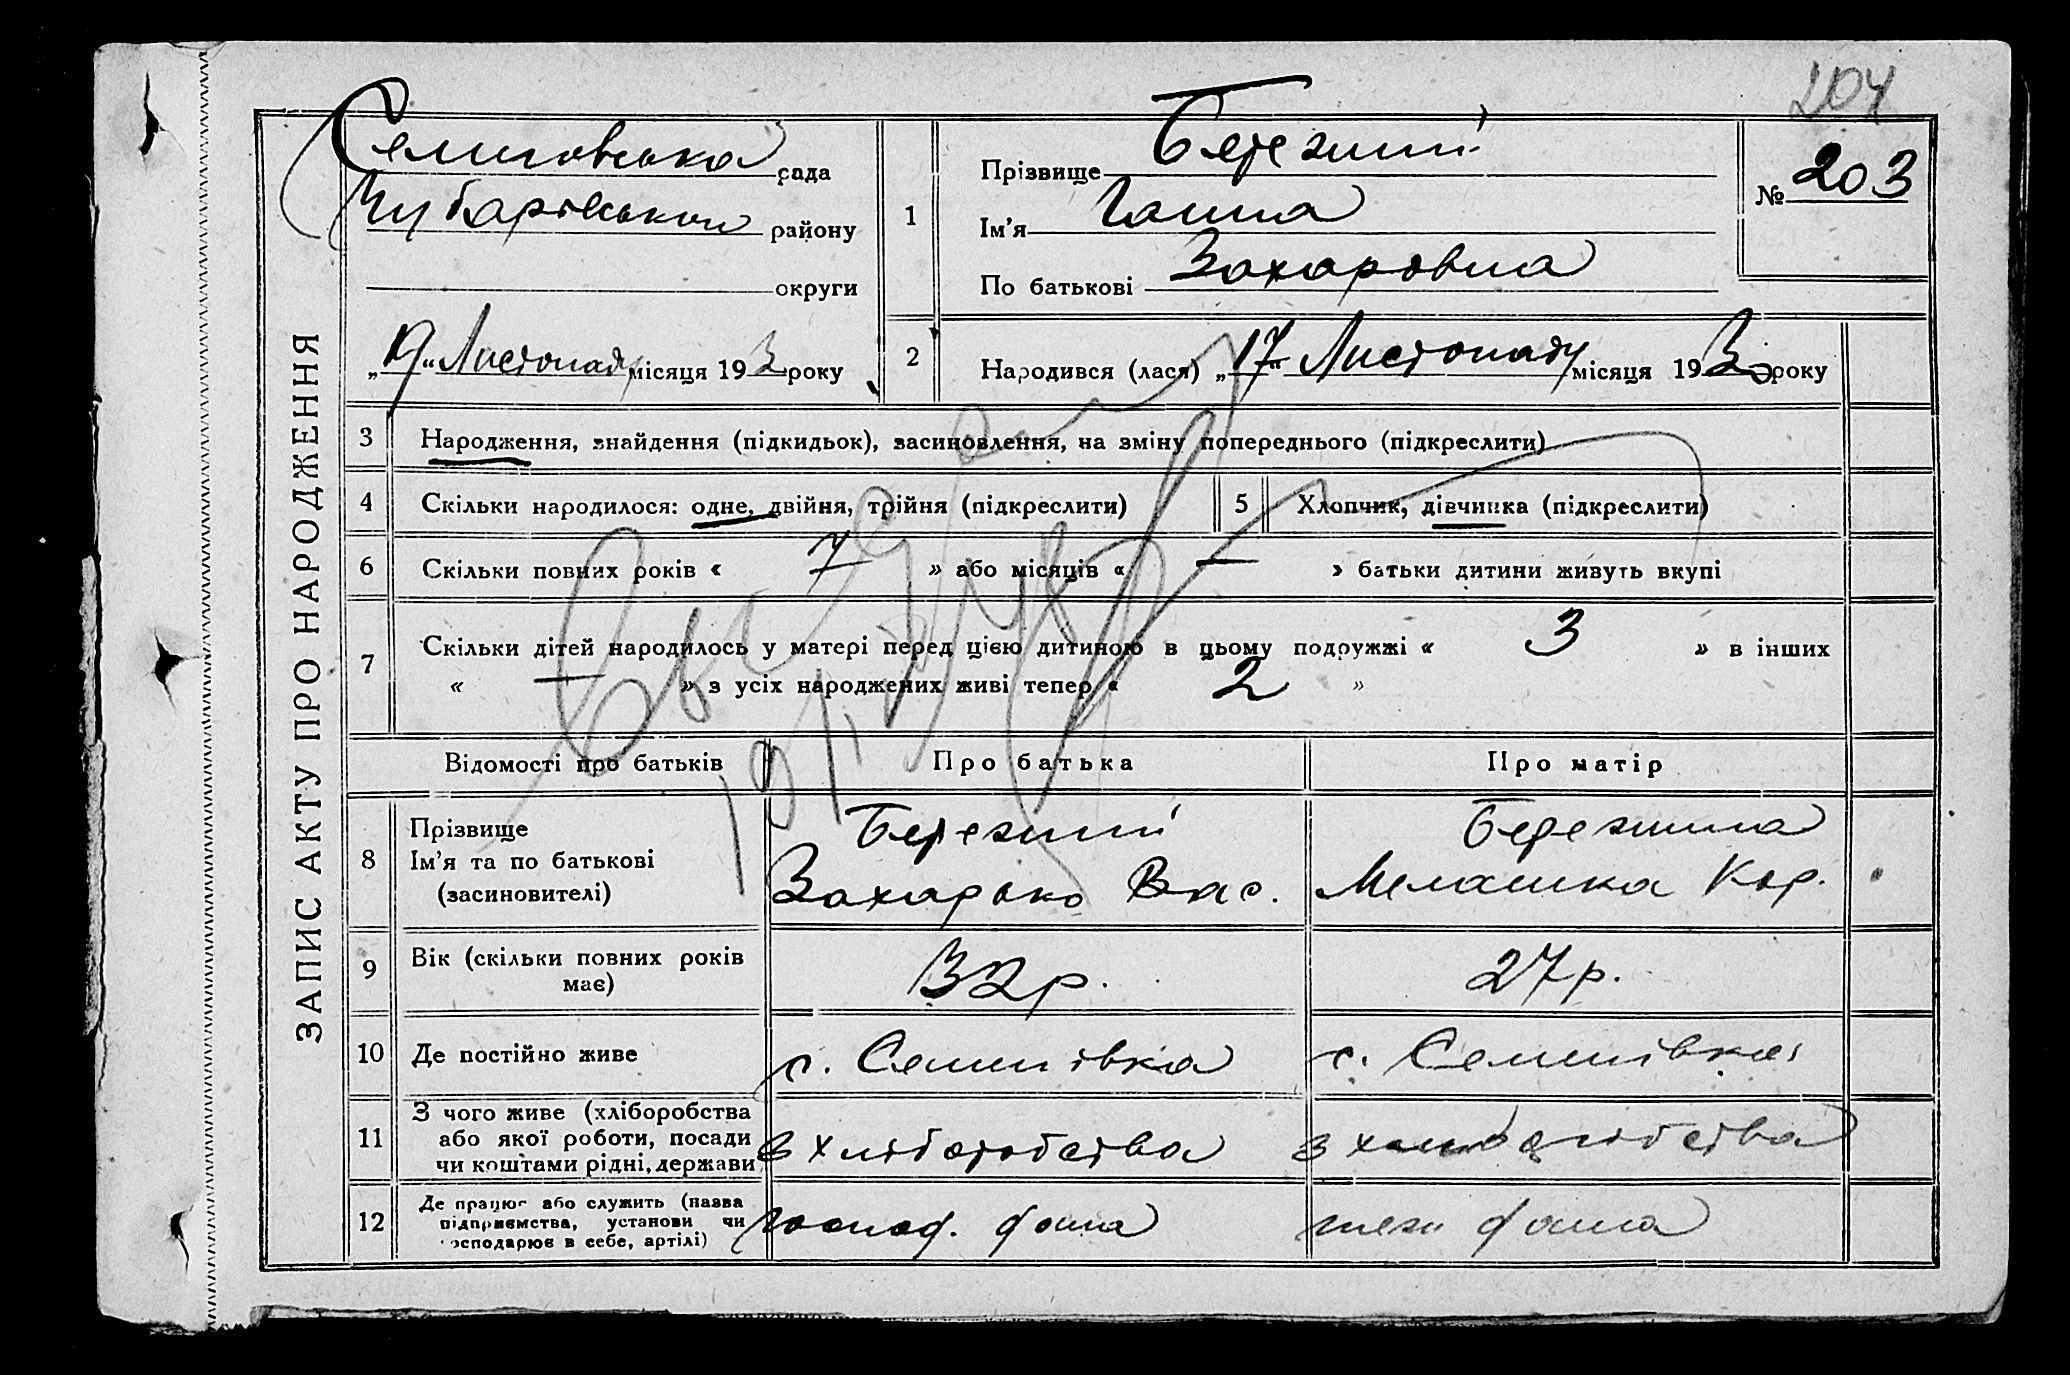 204
ЗАПИС АКТУ ПРО НАРОДЖЕННЯ
Семенівська рада
Чубарівського району
округи
„19“ Листопаду місяця 193 року
1
Прізвище Бережний
Ім’я Ганна
По батькові Захаровна
№ 203
2
Народився (лася) „17“ Листопаду місяця 193 року
3 Народження, знайдення (підкидьок), засиновлення, на зміну попереднього (підкреслити)
4 Скільки народилося: одне, двійня, трійня (підкреслити)
5 Хлопчик, дівчинка (підкреслити)
6 Скільки повних років « 7 » або місяців « — » батьки дитини живуть вкупі
7 Скільки дітей народилось у матері перед цією дитиною в цьому подружжі « 3 » в інших
« — » з усіх народжених живі тепер « 2 »
Відомості про батьків Про батька Про матір
8
Прізвище
Ім’я та по батькові
(засиновителі)
Бережний
Захарько Вас.
Бережнна
Мелашка Кор.
9 Вік (скільки повних років
має)
32 р.
27 р.
10 Де постійно живе
с. Семенівка
с. Семенівка
11
З чого живе (хліборобства
або якої роботи, посади
чи коштами рідні, держави
з хліборобства
з хліборобства
12
Де працює або служить (назва
підприємства, установи чи
господарює в себе, артілі)
господ. дома
дома